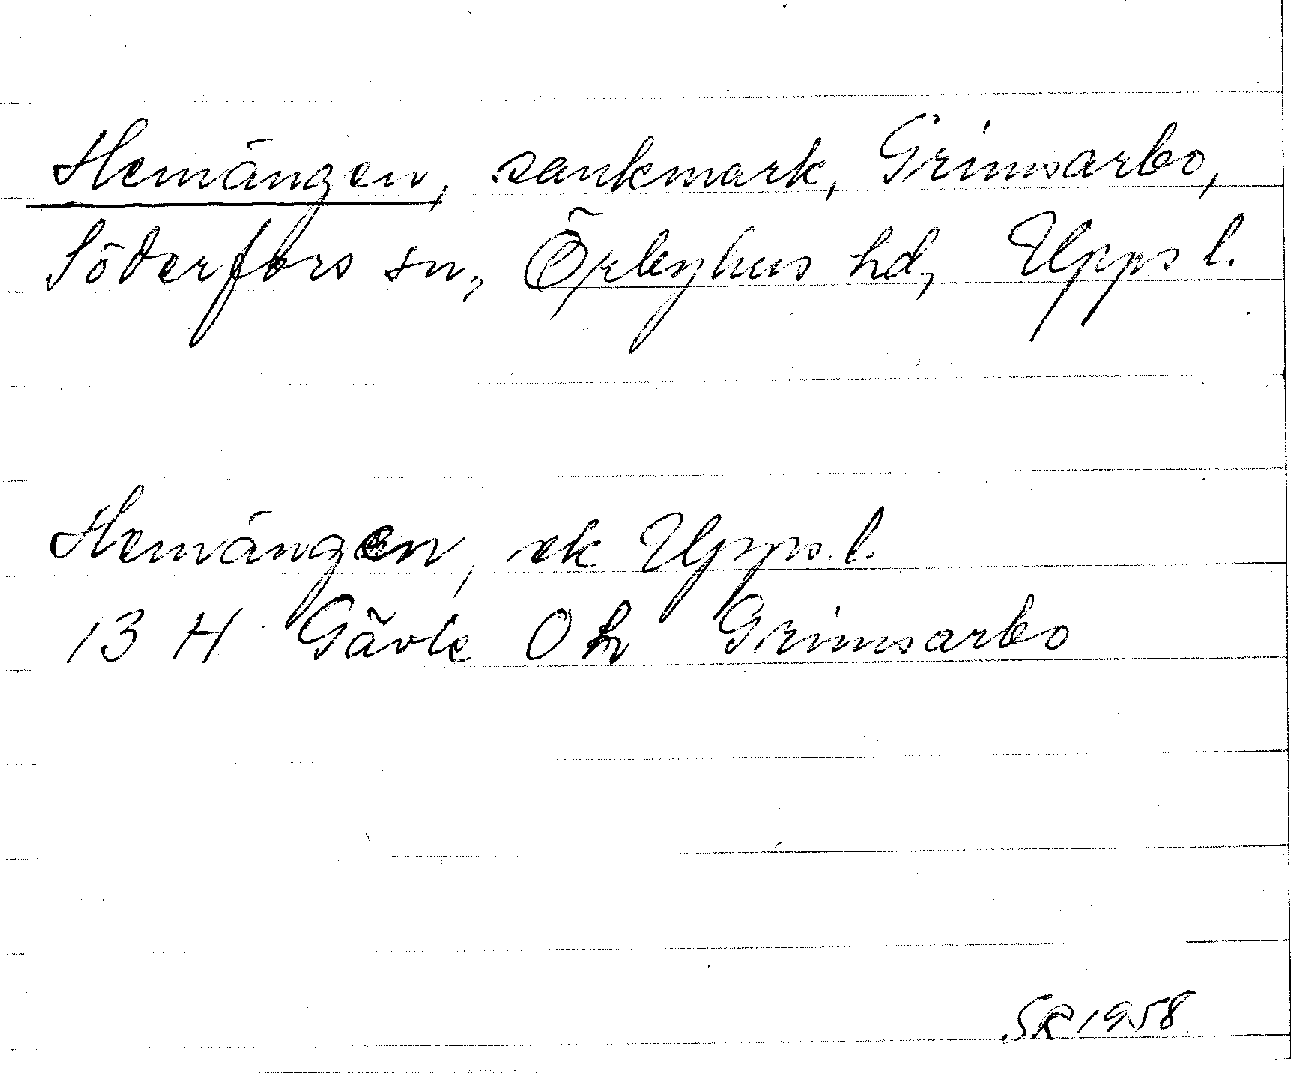 Hemängen, sankmark, Grimsarbo,
Söderfors sn, Örbyhus hd, Upps l.
Hemängen, ek Upps. l.
13 H Gävle Grimsarbo
SR 1958